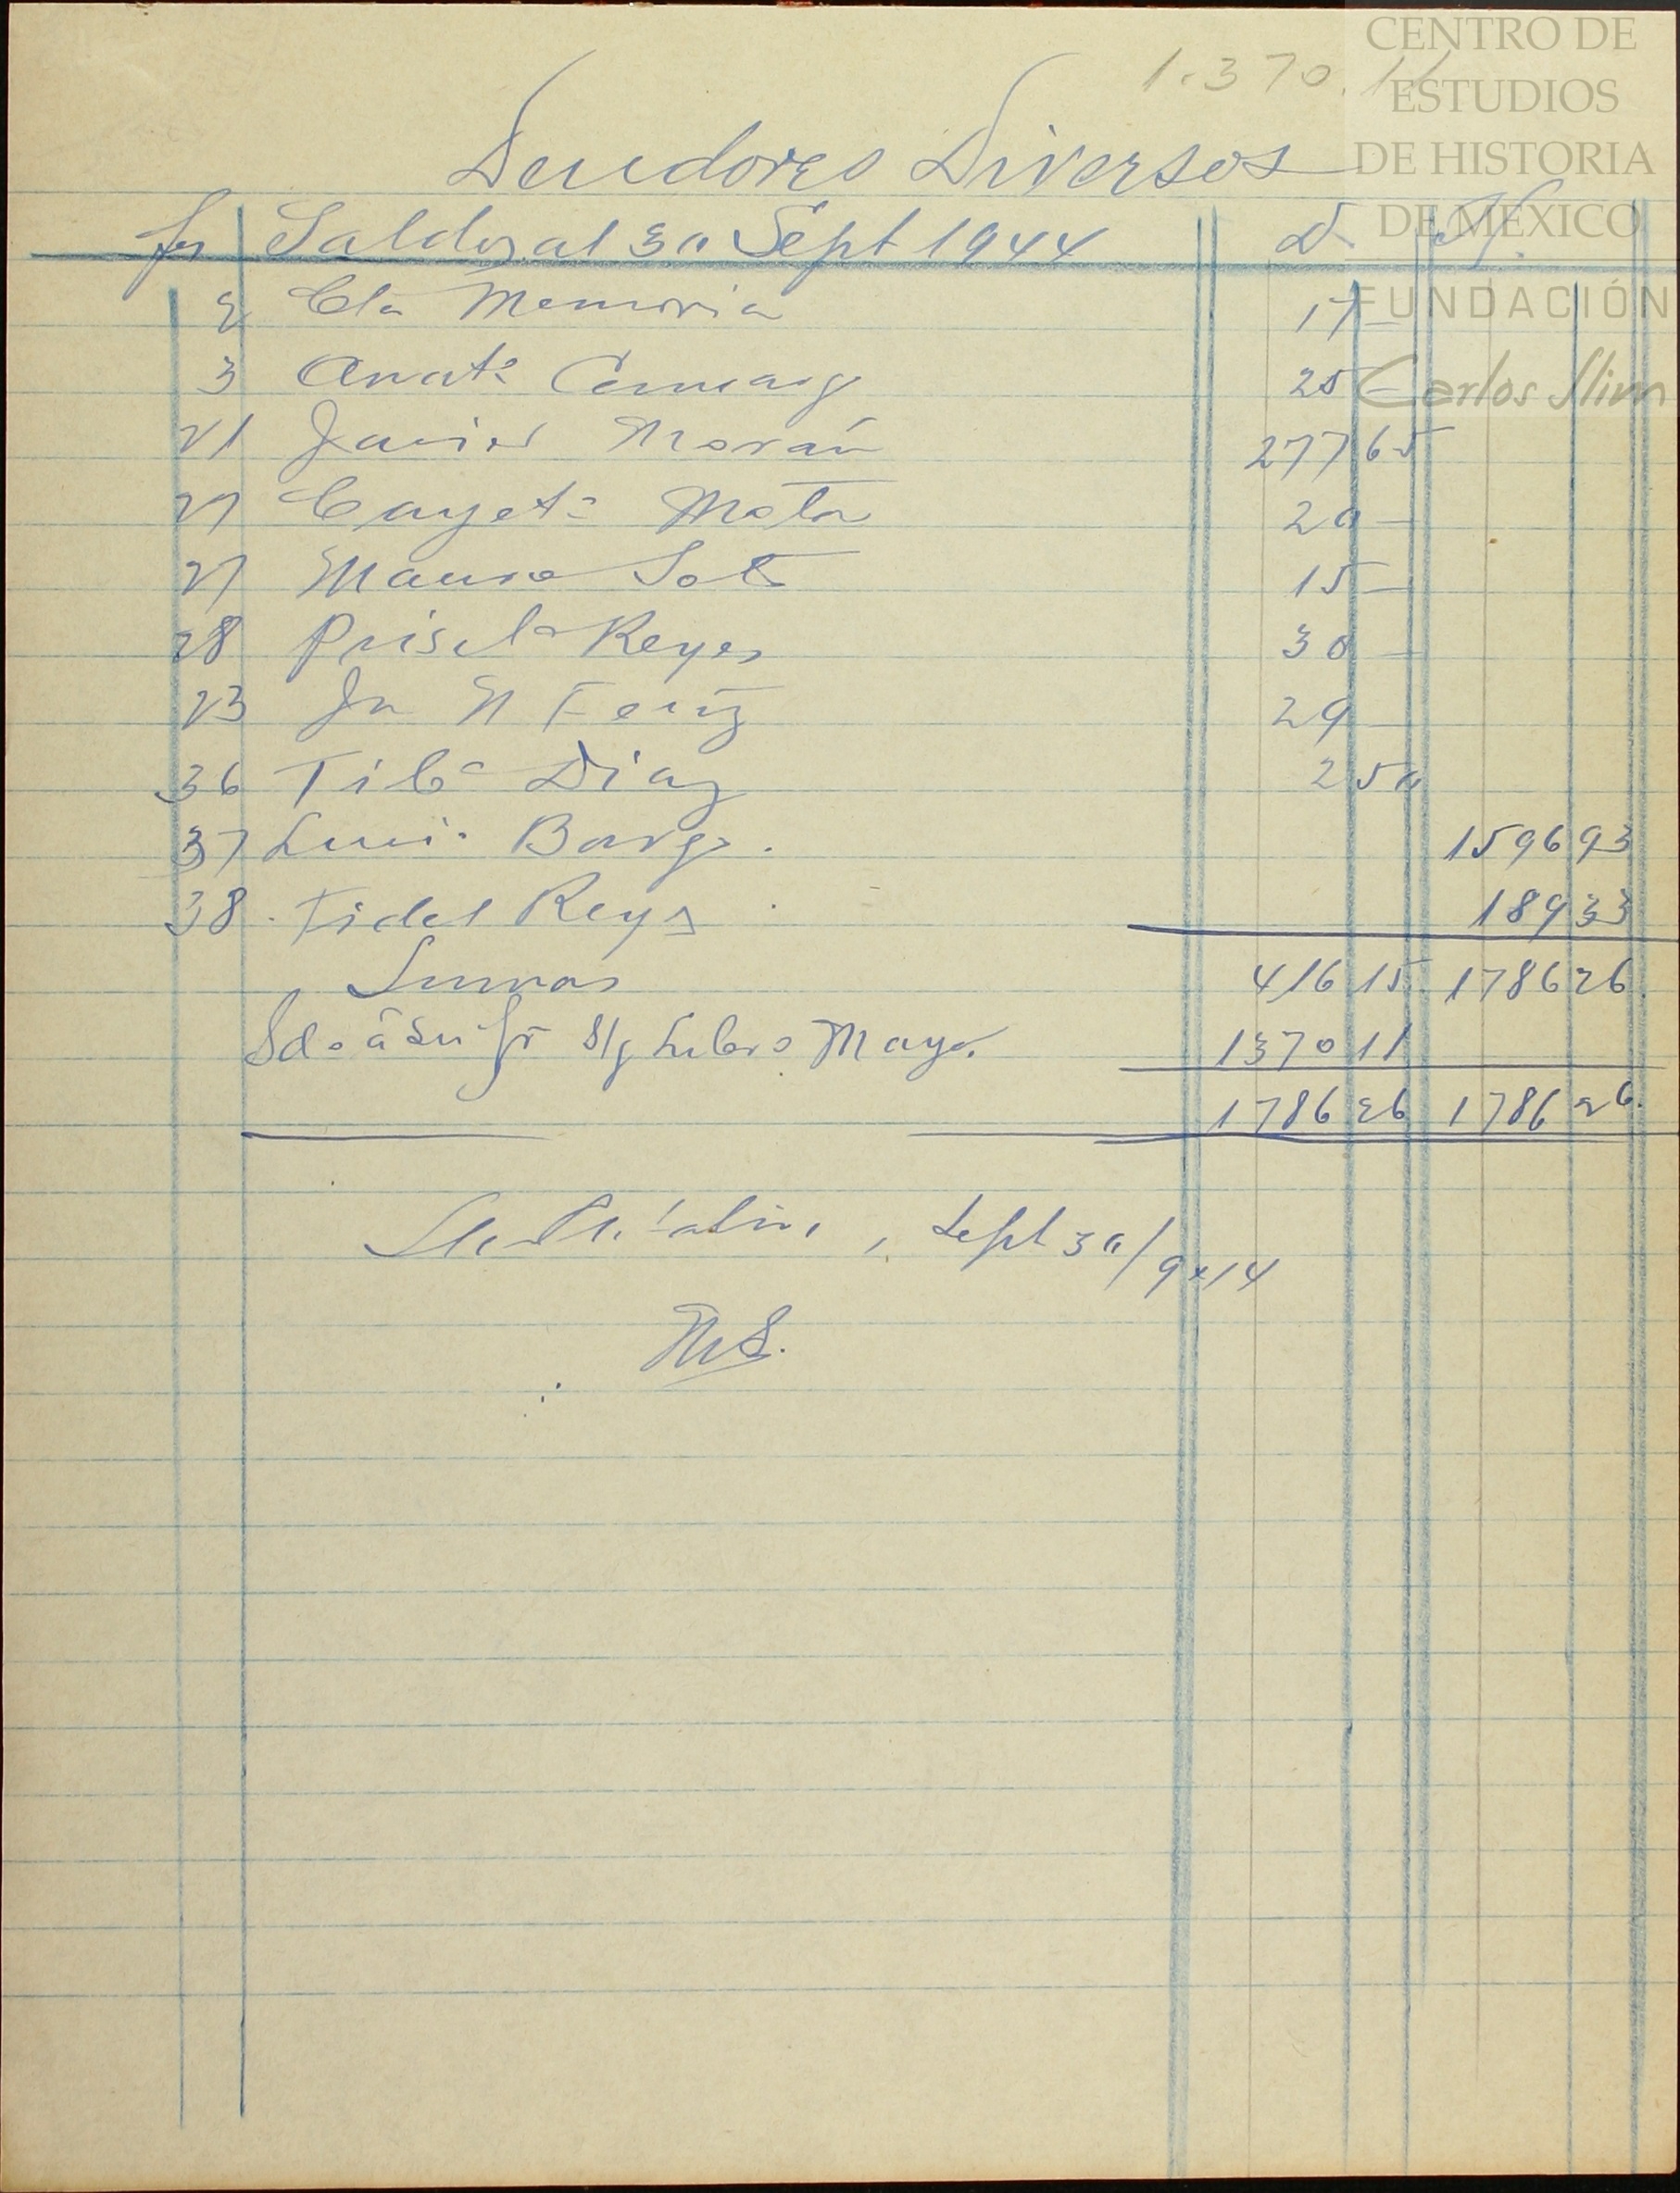 CENTRO DE
ESTUDIOS
DE HISTORIA
DE MÉXICO
FUNDACIÓN
Carlos Slim
1.370.11
Deudores Diversos
fs Saldos al 30 Sept 1944 D. H.
2 Cta Memoria 17 —
3 Anato Camarg 25 —
21 Javier Morán 277 65
27 Cayeto Mota 20 —
27 Mauro Soto 15 —
28 Prisclo Reyes 30 —
23 Jn N Ferrz 29 —
36 Tibo Diaz 2 50
37 Luis Barge. 1596 93
38 Fidel Reys 189 33
Sumas 416 15 1786 26
Sdo á su fr S/g Libro Mayor. 1370 11
1786 26 1786 26
, Sept 30/944
MS.